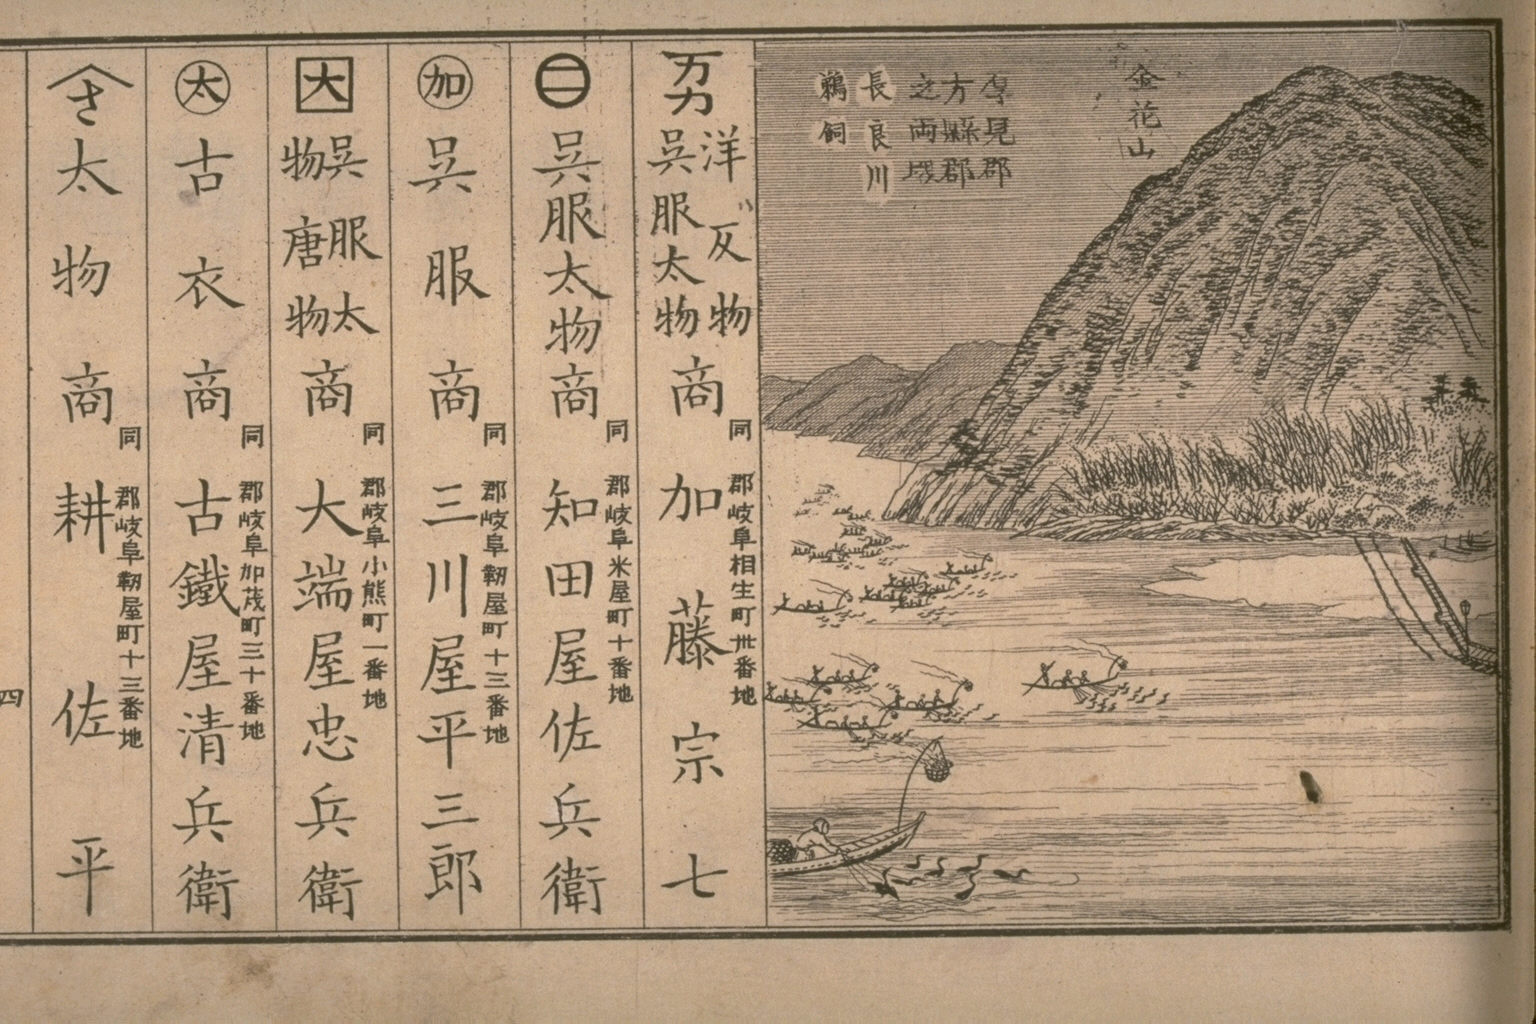 金花山
厚見郡
方縣郡
之両岐
長良川
鵜飼
万力
洋反物
呉服太物
商
同郡岐阜相生町卅番地
加藤宗七
二
呉服太物商
同郡岐阜米屋町十番地
知田屋佐兵衛
加
呉服商
同郡岐阜靭屋町十三番地
三川屋平三郎
大
呉服太
物唐物
商
同郡岐阜小熊町一番地
大端屋忠兵衛
太
古衣商
同郡岐阜加茂町三十番地
古鐵屋清兵衛
さ
太物商
同郡岐阜靭屋町十三番地
耕佐平
四